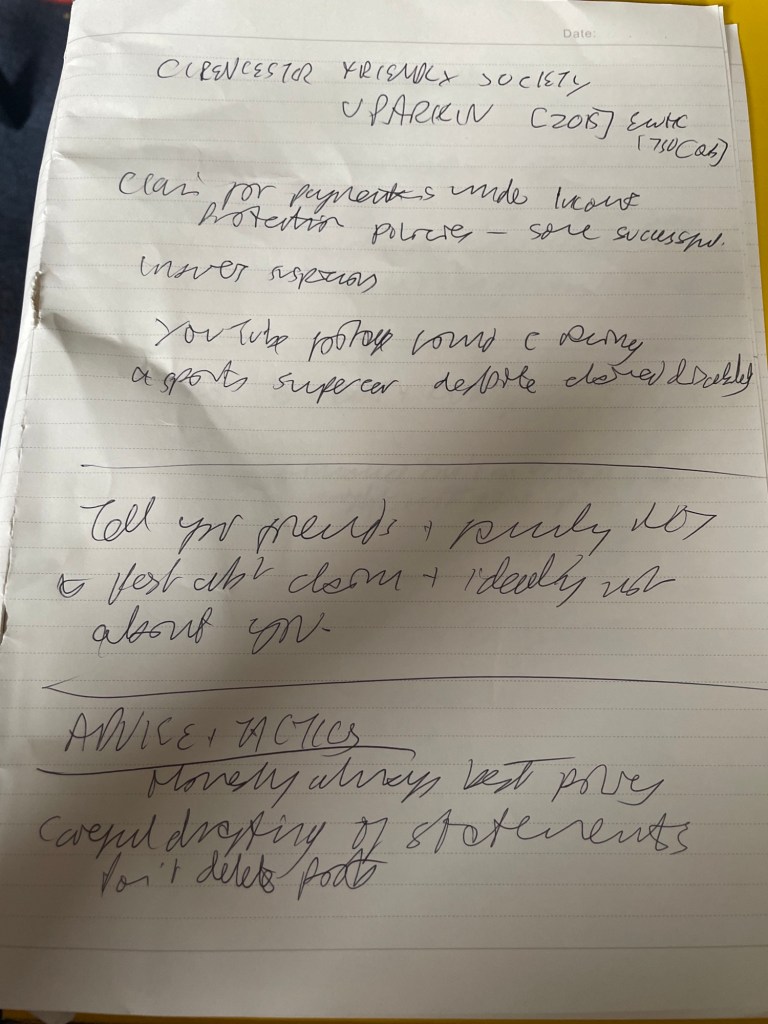 Date:
CIRENCESTER FRIENDLY SOCIETY
V PARKIN [2015] EWHC
1750 (QB)
Claim for payments under Income
Protection policies – some successful.
insurer suspicious
YouTube footage found C racing
a sports supercar despite claimed disability
Tell your friends + family not
to post abt claim + ideally not
about you.
ADVICE + TACTICS
Honesty always best policy
Careful drafting of statements
Don't delete posts